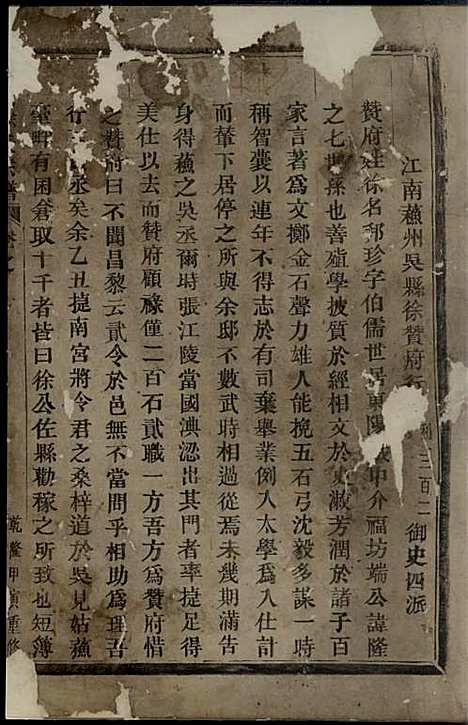 列三百二
御史四派
江南蘓州吳縣徐贊府行
贊府姓徐名邦珍字伯儒世居東陽城中介福坊端公諱隆
之七世孫也善殖學披質於經相文於史漱芳潤於諸子百
家言著為文擲金石聲力雄人能挽五石弓沈毅多謀一時
稱智囊以連年不得志於有司棄舉業例入太學為入仕計
而輦下居停之所與余邸不數武時相過從焉未幾期滿告
身得蘓之吳丞爾時張江陵當國澳涊出其門者率捷足得
美仕以去而贊府顧祿僅二百石貳職一方吾方為贊府惜
之贊府曰不聞昌黎云貳令於邑無不當問乎相助為理吾
行 丞矣余乙丑捷南宮將令君之桑梓道於吳見姑蘓
畝有囷倉取十千者皆曰徐公佐縣勸稼之所致也短簿
乾隆甲寅重修